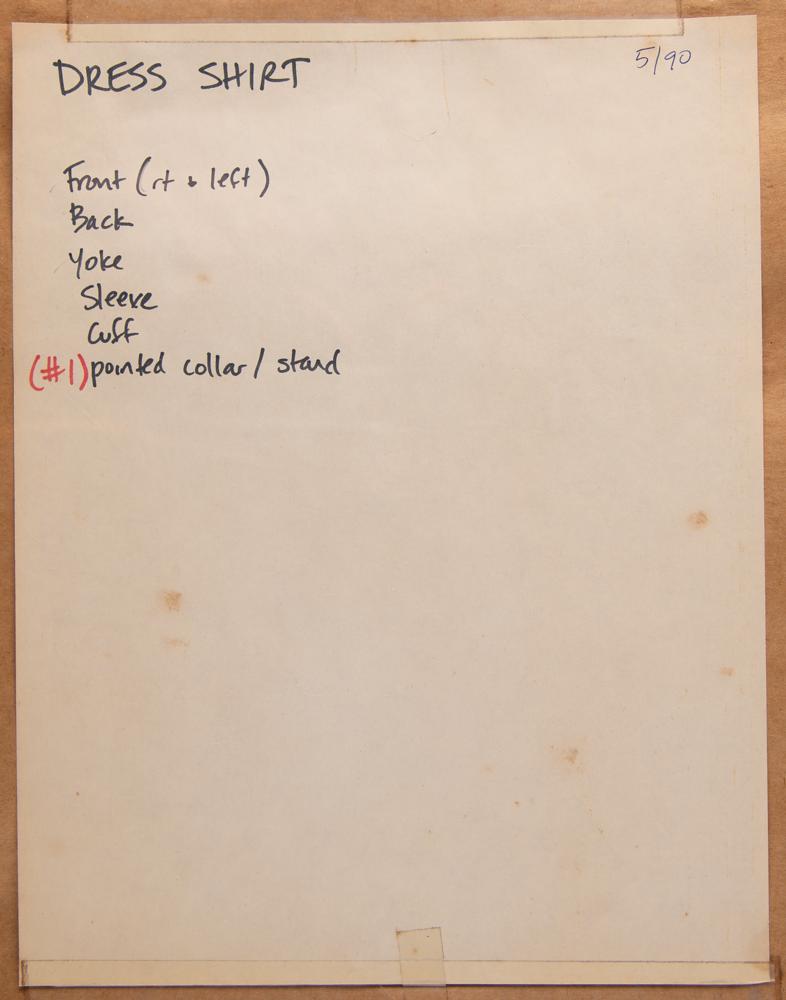 DRESS SHIRT
5/90
Front (rt & left)
Back
Yoke
Sleeve
Cuff
(#1) pointed collar / stand